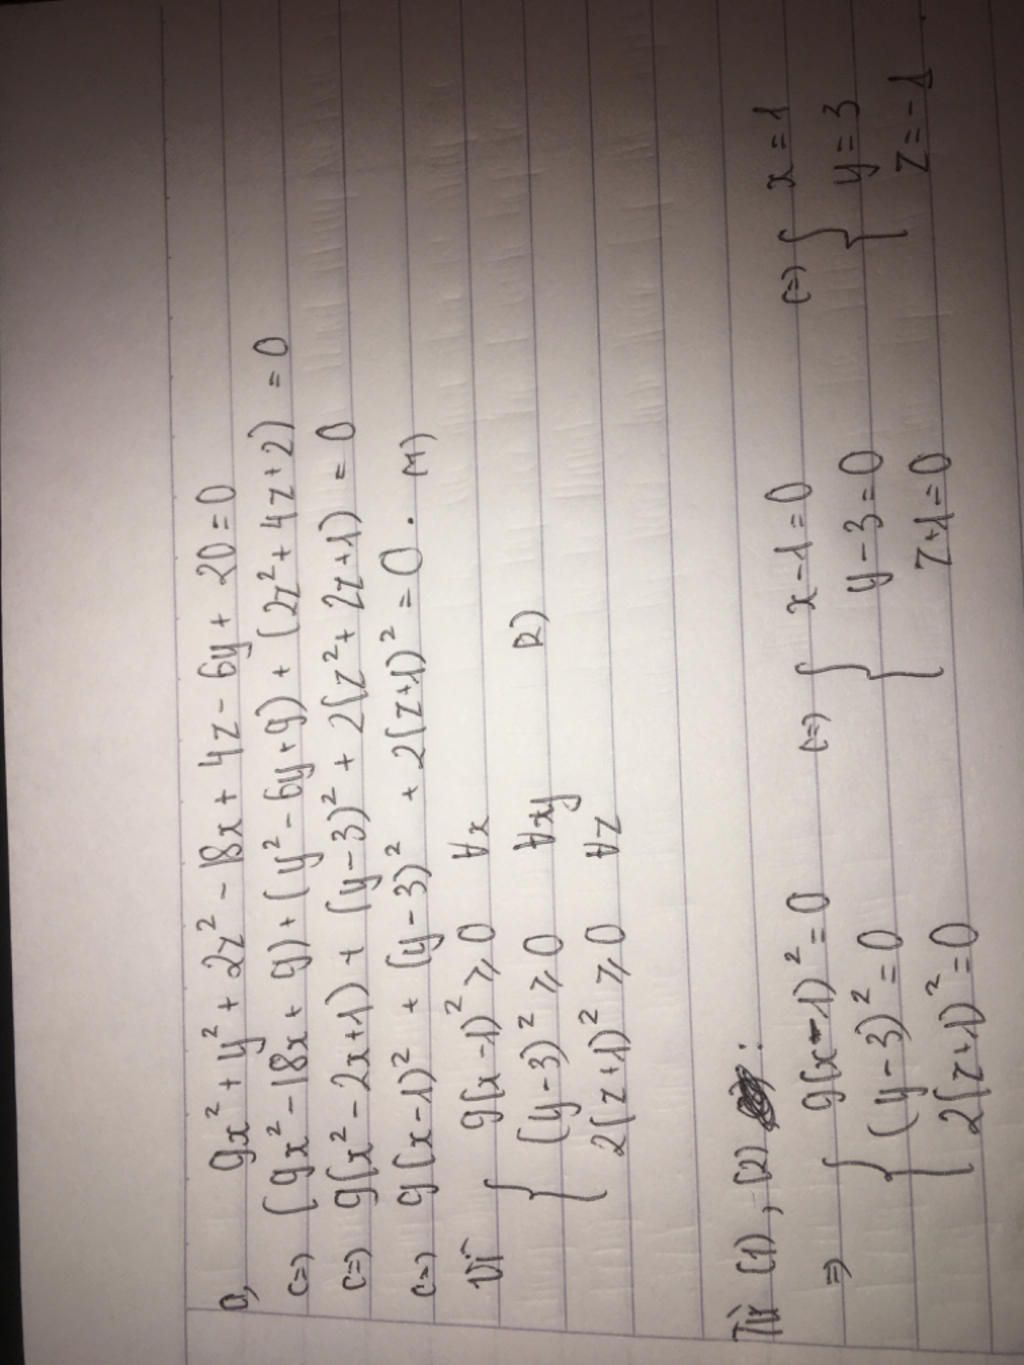 a, 9x² + y² + 2z² - 18x + 4z - 6y + 20 = 0
(=) (9x² - 18x + 9) + (y² - 6y + 9) + (2z² + 4z + 2) = 0
(=) 9(x² - 2x + 1) + (y - 3)² + 2(z² + 2z + 1) = 0
(=) 9(x - 1)² + (y - 3)² + 2(z + 1)² = 0. (1)
Vì { 9(x - 1)² ≥ 0 ∀x
(y - 3)² ≥ 0 ∀y (2)
2(z + 1)² ≥ 0 ∀z
Từ (1), (2) :
=> { 9(x - 1)² = 0 (=) { x - 1 = 0 (=) { x = 1
(y - 3)² = 0 y - 3 = 0 y = 3
2(z + 1)² = 0 z + 1 = 0 z = -1